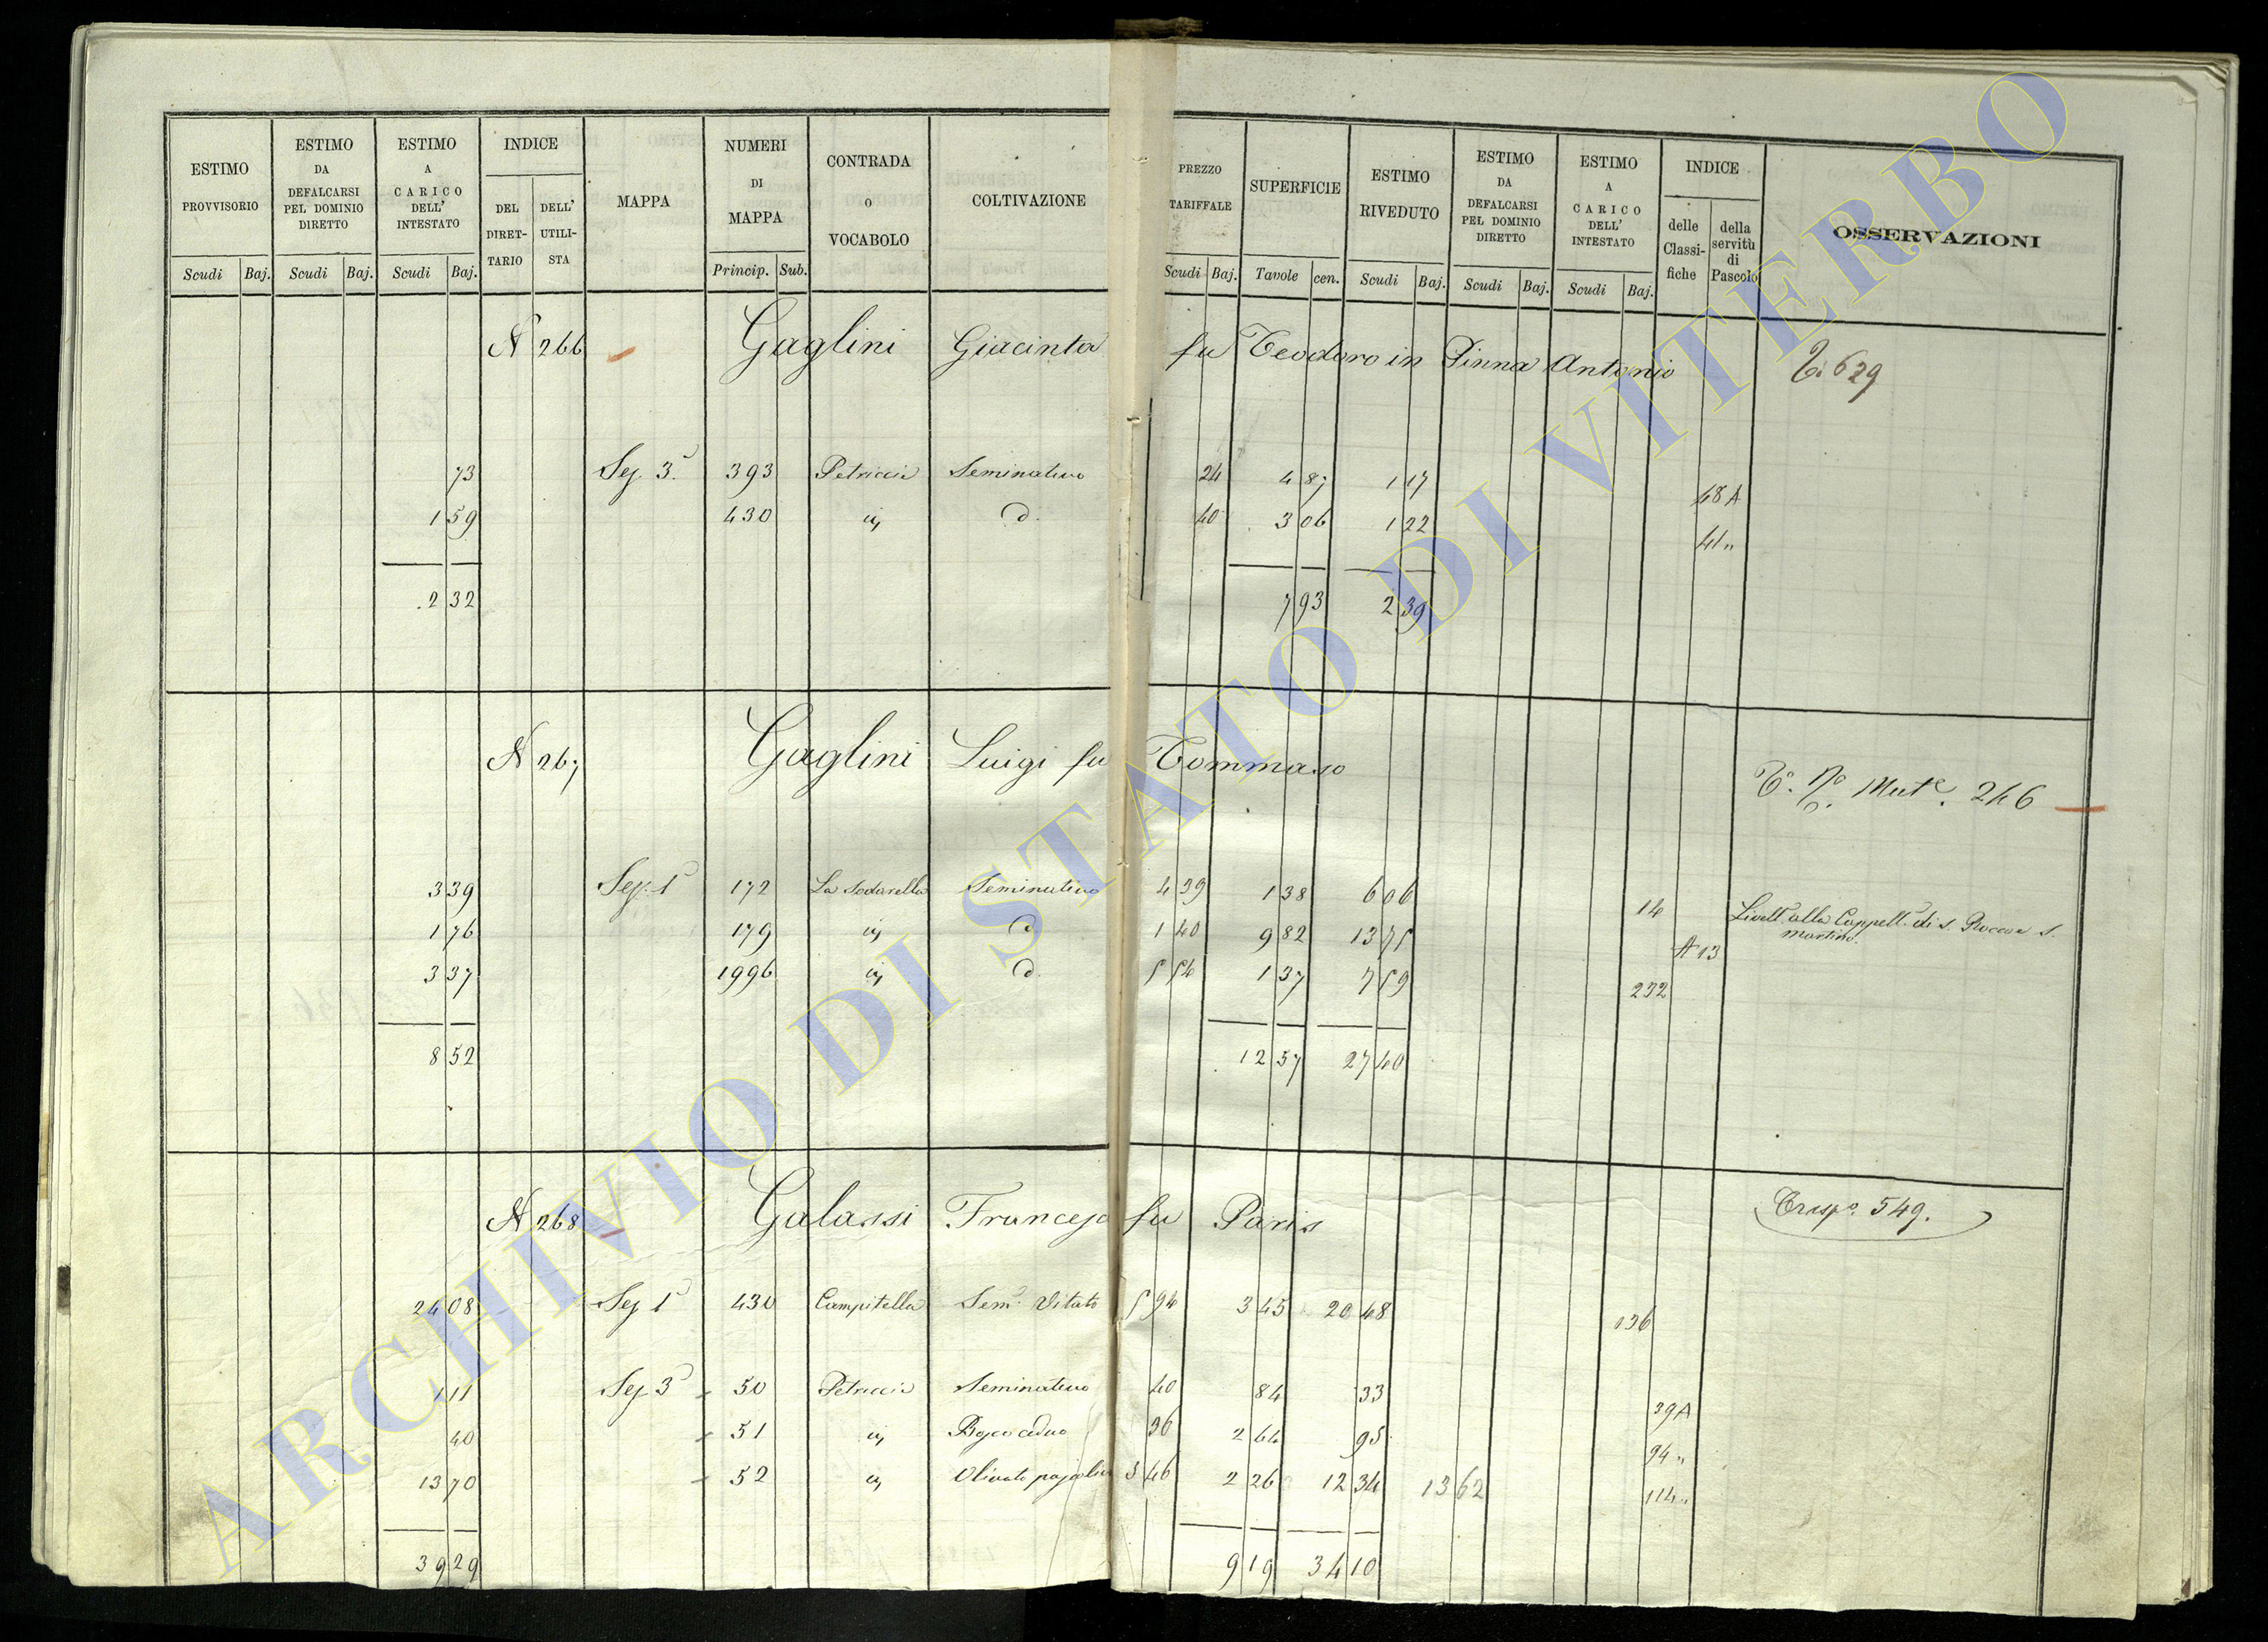 ESTIMO PROVVISORIO ESTIMO DA DEFALCARSI PEL DOMINIO DIRETTO ESTIMO A CARICO DELL' INTESTATO INDICE DEL DIRET-TARIO DELL' UTILI-STA MAPPA NUMERI DI MAPPA CONTRADA O VOCABOLO COLTIVAZIONE PREZZO TARIFFALE SUPERFICIE ESTIMO RIVEDUTO ESTIMO DA DEFALCARSI PEL DOMINIO DIRETTO ESTIMO A CARICO DELL' INTESTATO INDICE delle Classi-fiche della servitù di Pascolo OSSERVAZIONI
Scudi Baj. Scudi Baj. Scudi Baj. Princip. Sub. Scudi Baj. Tavole cen. Scudi Baj. Scudi Baj. Scudi Baj.
N 266 Gaglini Giacinta fu Teodoro in Pinna Antonio 629
73 Sez. 3ª 393 Petriccia Seminativo 24 4 87 1 17 48 A
1 59 430 id. d. 40 3 06 1 22 41 "
2 32 7 93 2 39
N 267 Gaglini Luigi fu Tommaso Mut. 246
3 39 Sez. 1ª 172 La Sodarella Seminativo 4 39 1 38 6 06 14 Livell. alla Cappell. di S. Rocco e S. Martino.
1 76 179 id. d. 1 40 9 82 13 75 A 13
3 37 1996 id. d. 5 54 1 37 7 59 232
8 52 12 57 27 40
N 268 Galassi Francesco fu Paris Trasp. 549.
24 08 Sez. 1ª 430 Campitella Sem. Vitato 5 94 3 45 20 48 136
1 11 Sez. 3ª 50 Petriccia Seminativo 40 84 33 39 A
40 51 id. Bosco ceduo 36 2 64 95 94 "
13 70 52 id. Olivato pascolivo 5 46 2 26 12 34 13 62 114 "
39 29 9 19 34 10
ARCHIVIO DI STATO DI VITERBO